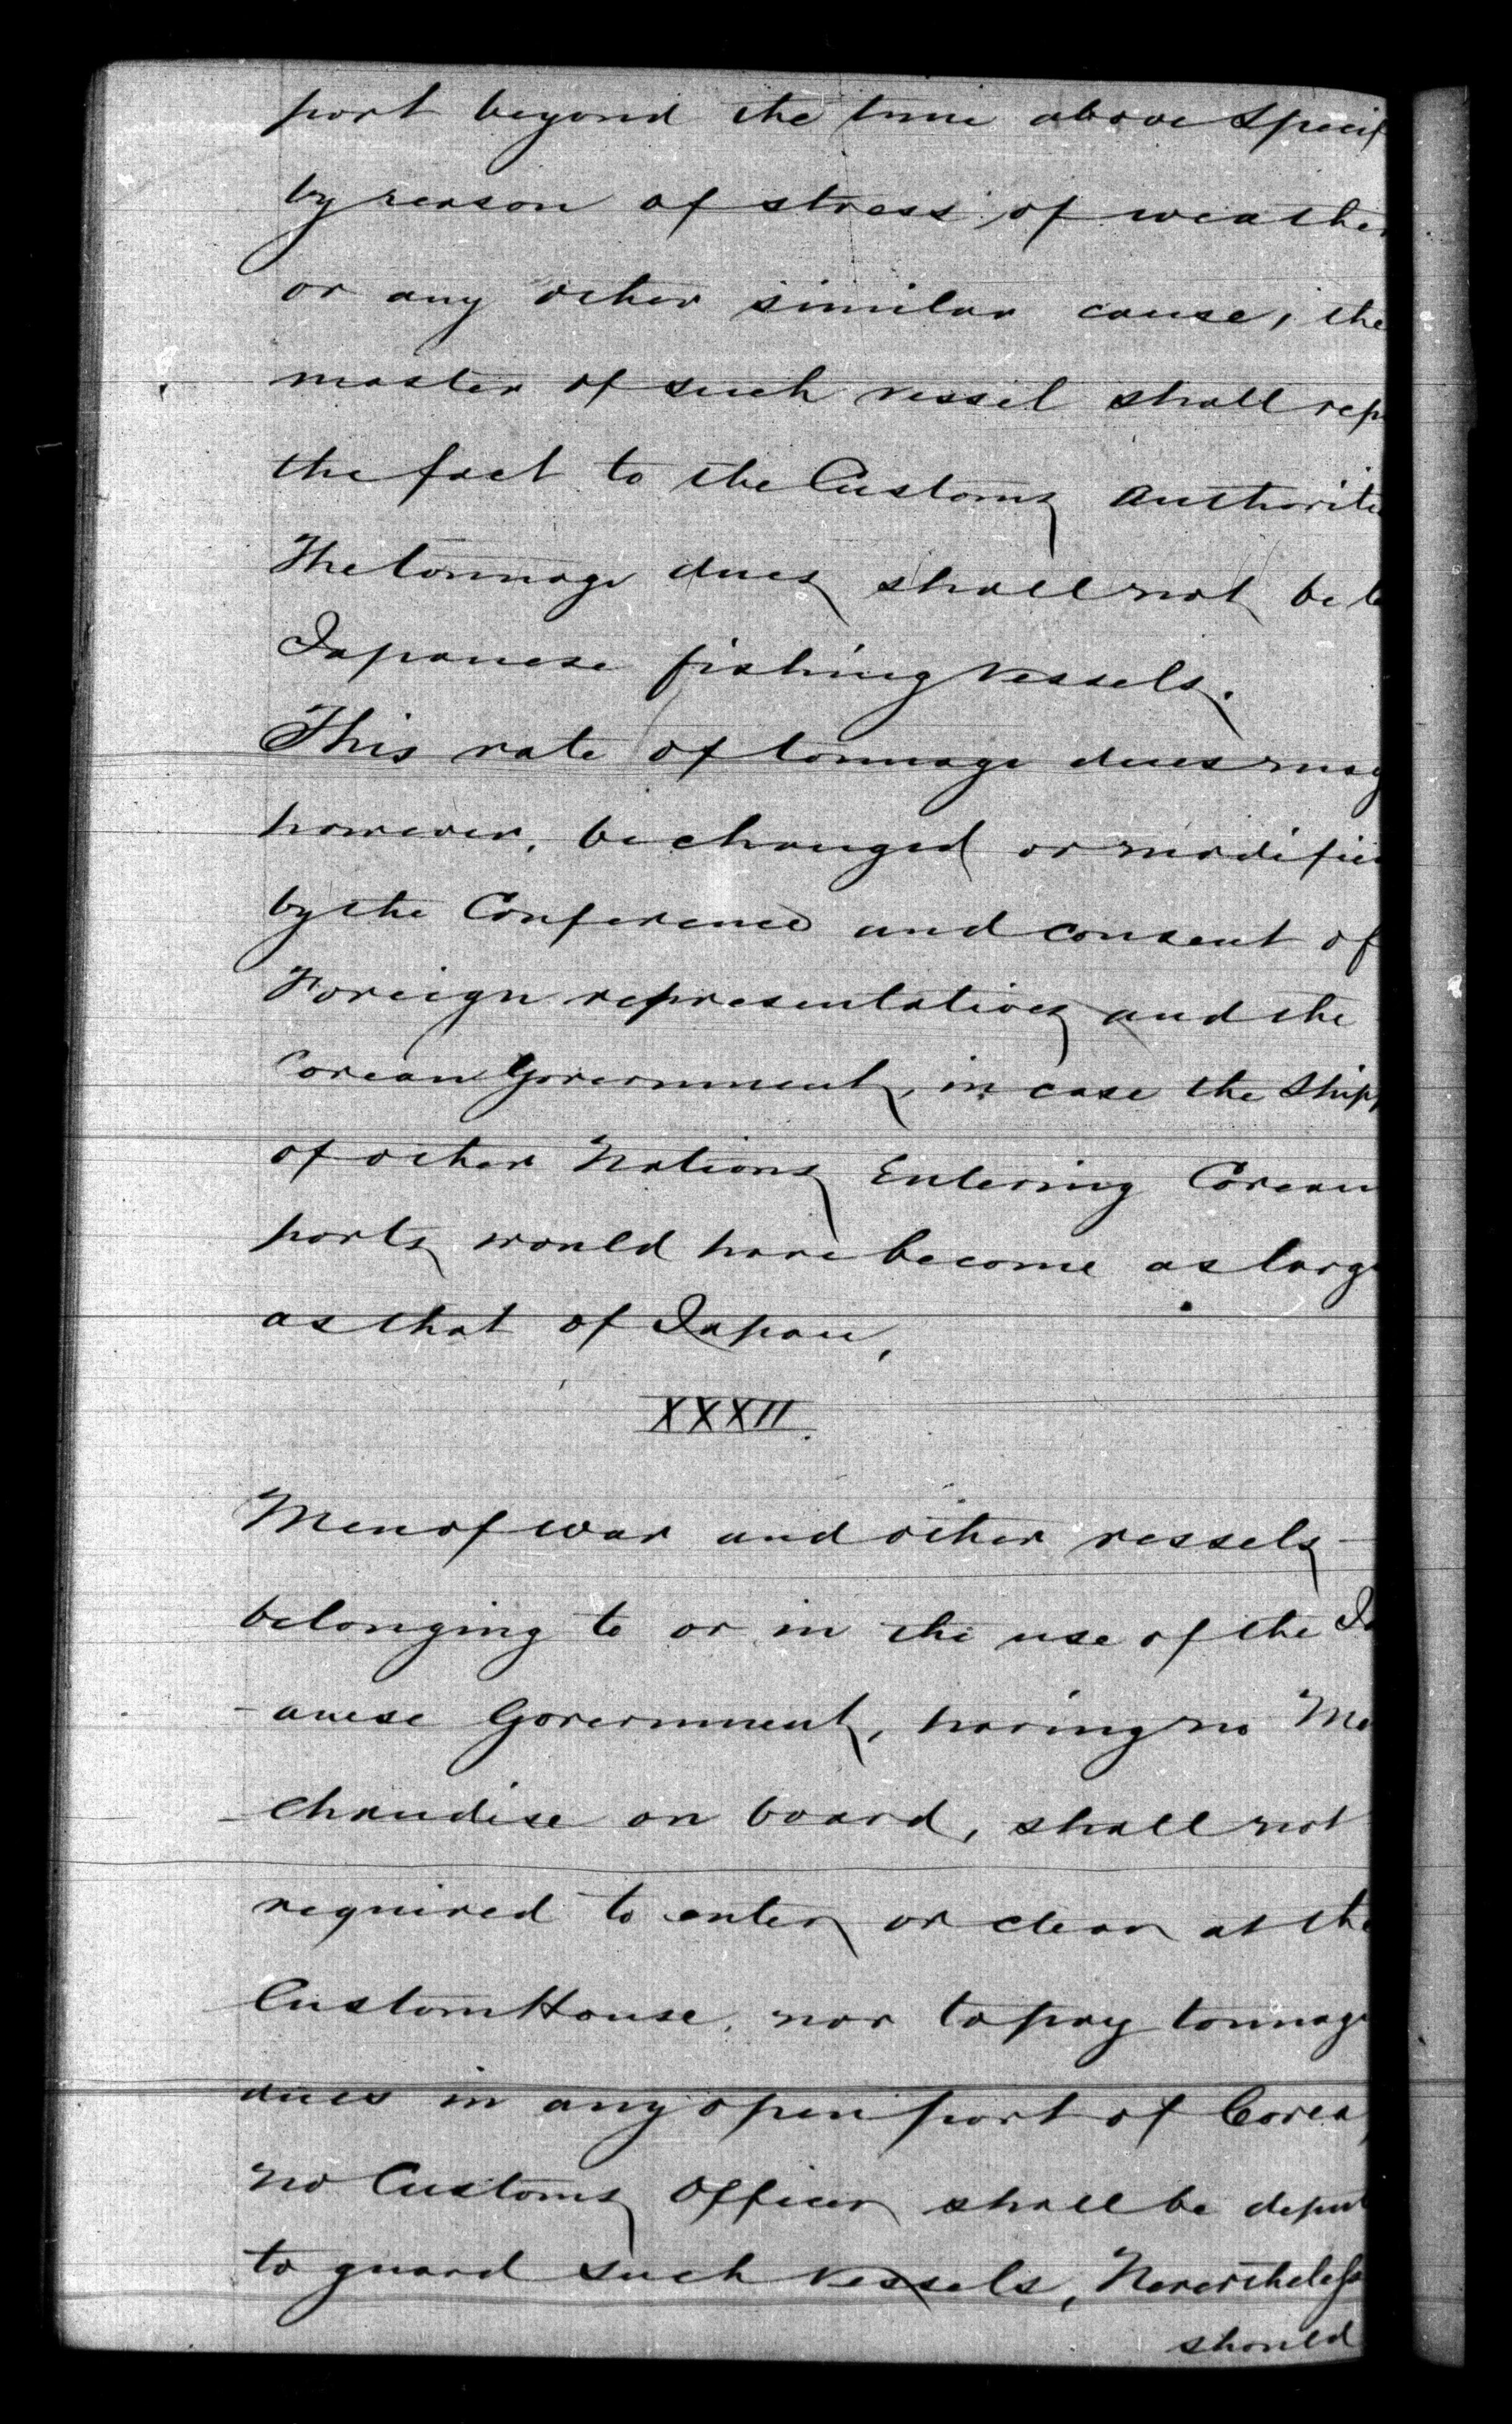 port beyond the time above specif
by reason of stress of weather
or any other similar cause, the
master of such vessel shall rep
the fact to the Customs Authoritie
The tonnage dues shall not be
Japanese fishing vessels.
This rate of tonnage dues may
however, be changed or modifie
by the Conference and consent of
Foreign representatives and the
Corean Government, in case the Shipp
of other Nations Entering Corean
ports would have become as large
as that of Japan,
XXXII.
Men of war and other vessels
belonging to or in the use of the Ja
-anese Government, having no Me
-chandise on board, shall not
required to enter or clear at the
Custom House, nor to pay tonnage
dues in any open port of Corea,
no Customs Officer shall be deput
to guard such vessels, Nevertheless
should